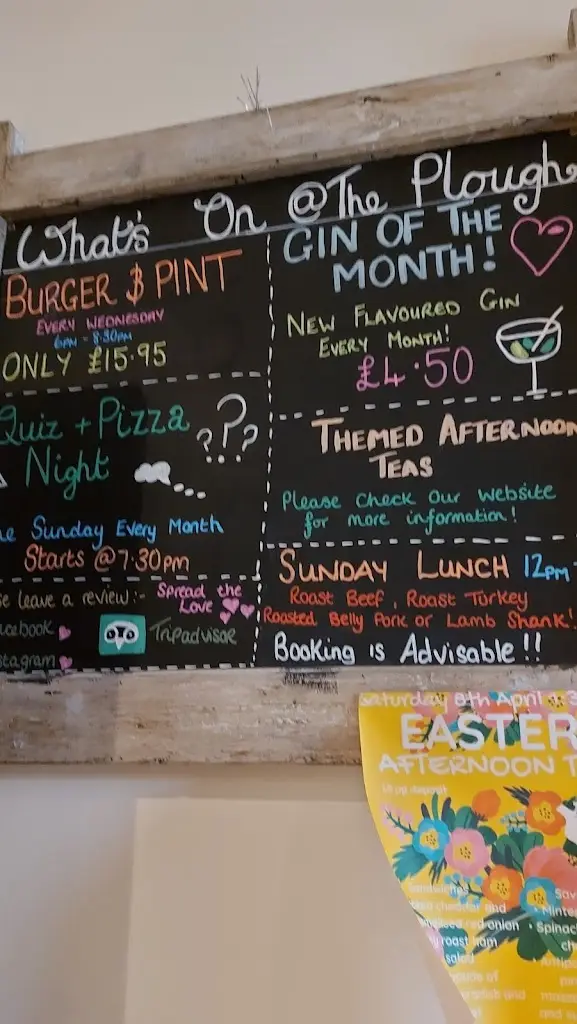 What's On @The Plough
BURGER $ PINT
EVERY WEDNESDAY
6PM - 8:30PM
ONLY £15.95
Quiz + Pizza
Night
???
Sunday Every Month
Starts @ 7.30pm
leave a review:-
Spread the
Love
Tripadvisor
GIN OF THE
MONTH!
NEW FLAVOURED GIN
EVERY MONTH!
£4.50
THEMED AFTERNOON
TEAS
Please Check Our Website
for more information!
SUNDAY LUNCH 12PM
Roast Beef, Roast Turkey
Roasted Belly Pork or Lamb Shank!
Booking is Advisable!!
Saturday 8th April
EASTER
AFTERNOON T
Sandwiches
cheddar and
red onion
roast ham
salad
Spinac